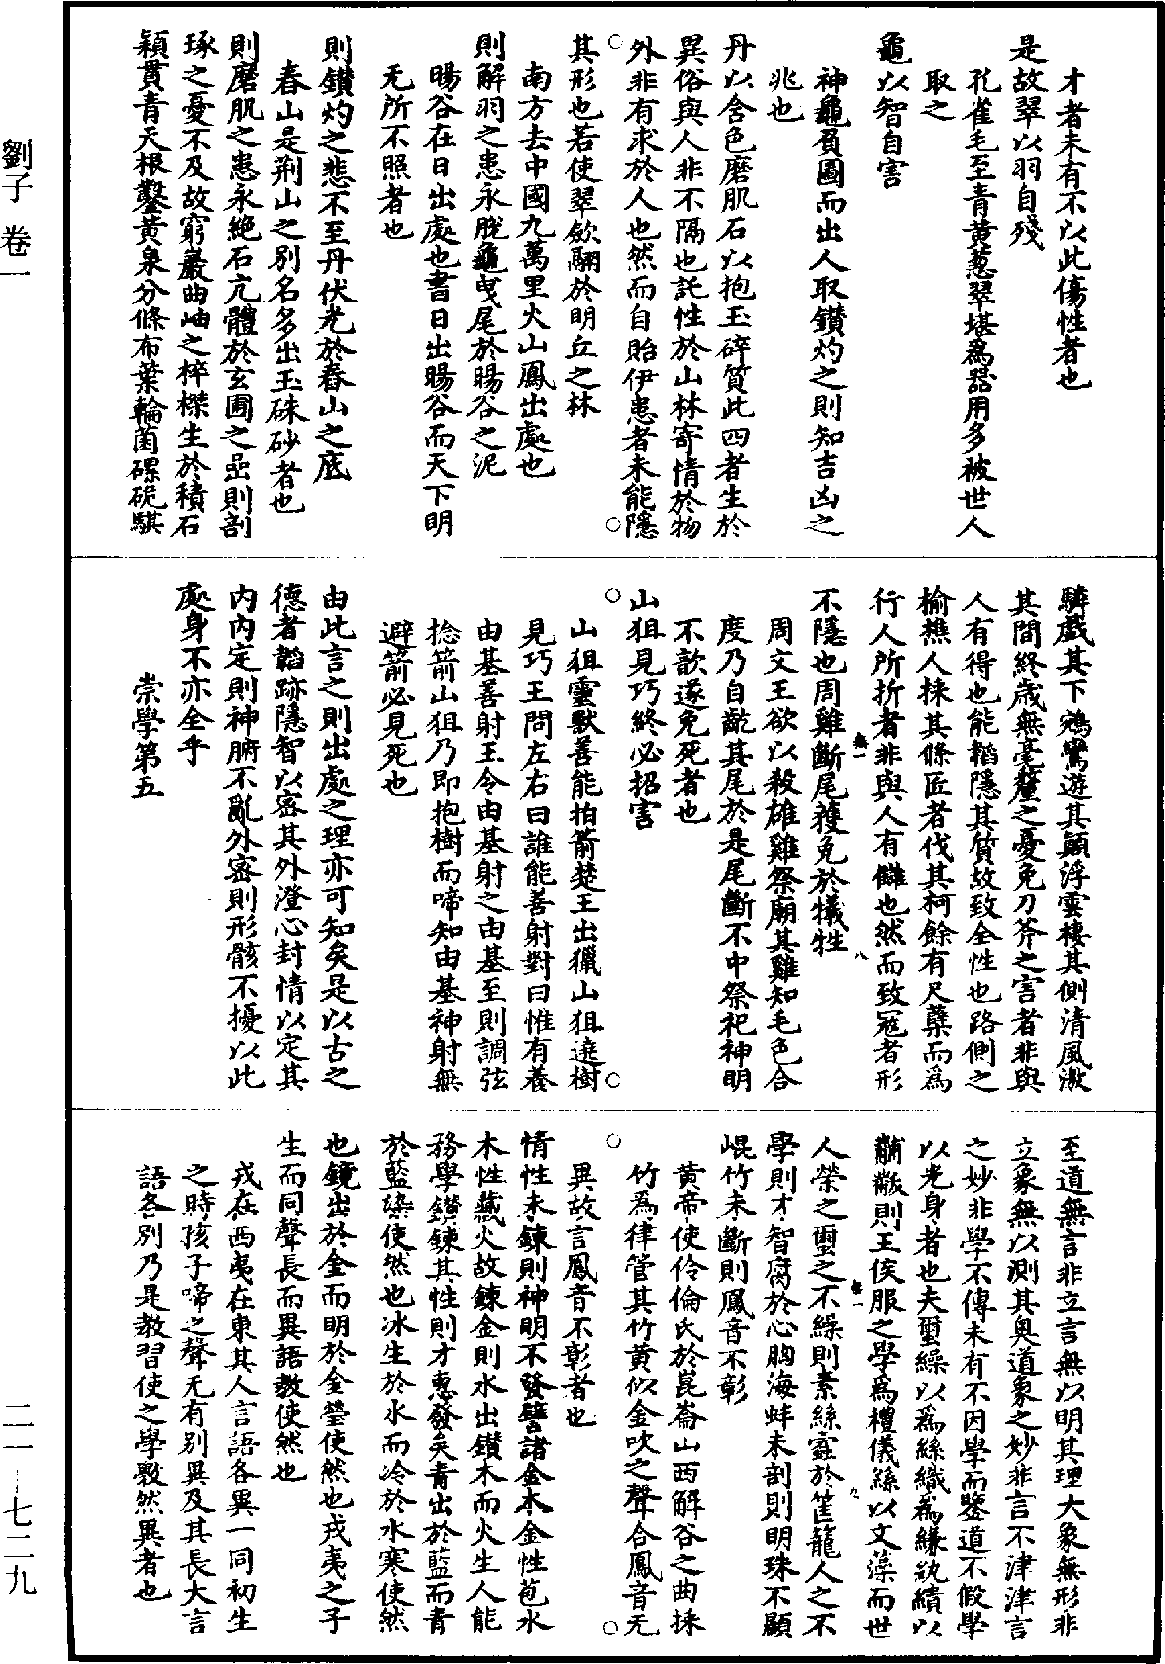 劉子 卷一
二一—七二九
才者未有不以此傷性者也
是故翠以羽自殘
孔雀毛至青黃葱翠堪爲器用多被世人
取之
龜以智自害
神龜負圖而出人取鑚灼之則知吉凶之
兆也
丹以含色磨肌石以抱玉碎質此四者生於
異俗與人非不隔也託性於山林寄情於物
外非有求於人也然而自貽伊患者未能隱
其形也若使翠斂翮於明丘之林
南方去中國九萬里火山鳳出處也
則解羽之患永脫龜曳尾於暘谷之泥
暘谷在日出處也書日出暘谷而天下明
无所不照者也
則鑚灼之悲不至丹伏光於舂山之底
舂山是荊山之別名多出玉硃砂者也
則磨肌之患永絕石亢體於玄圃之嵒則剖
琢之憂不及故窮巖曲岫之梓榤生於積石
穎貫青天根鑿黃泉分條布葉輪菌磥砢騏
驎戲其下鵷鸞遊其顛浮雲棲其側清風激
其間終歲無毫釐之憂免刀斧之害者非與
人有得也能韜隱其質故致全性也路側之
榆樵人採其條匠者伐其柯餘有尺蘖而爲
行人所折者非與人有讎也然而致寇者形
不隱也周雞斷尾獲免於犧牲
周文王欲以殺雄雞祭廟其雞知毛色合
度乃自齕其尾於是尾斷不中祭祀神明
不歆遂免死者也
山狙見巧終必招害
山狙靈獸善能拍箭楚王出獵山狙遶樹
見巧王問左右曰誰能善射對曰惟有養
由基善射王令由基射之由基至則調弦
捻箭山狙乃即抱樹而啼知由基神射無
避箭必見死也
由此言之則出處之理亦可知矣是以古之
德者韜跡隱智以密其外澄心封情以定其
內內定則神腑不亂外密則形骸不擾以此
處身不亦全乎
崇學第五
至道無言非立言無以明其理大象無形非
立象無以測其奧道象之妙非言不津津言
之妙非學不傳未有不因學而鑒道不假學
以光身者也夫璽繰以爲絲織爲縑紈繢以
黼黻則王侯服之學爲禮儀絲以文藻而世
人榮之璽之不繰則素絲蠹於筐籠人之不
學則才智腐於心胸海蚌未剖則明珠不顯
崐竹未斷則鳳音不彰
黃帝使伶倫氏於崑崙山西解谷之曲採
竹爲律管其竹黃似金吹之聲合鳳音无
異故言鳳音不彰者也
情性未鍊則神明不發譬諸金木金性苞水
木性藏火故鍊金則水出鑚木而火生人能
務學鑚鍊其性則才惠發矣青出於藍而青
於藍染使然也冰生於水而冷於水寒使然
也鏡出於金而明於金瑩使然也戎夷之子
生而同聲長而異語教使然也
戎在西夷在東其人言語各異一同初生
之時孩子啼之聲无有別異及其長大言
語各別乃是教習使之學斅然異者也